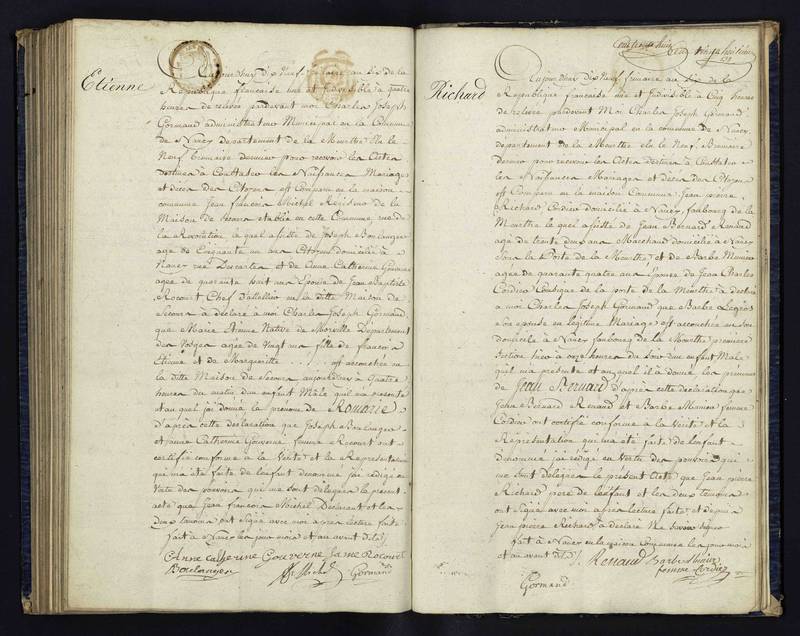 Etienne
Aujourdhui dix neuf frimaire an Six de la
République française une et Indivisible à quatre
heures de relevée pardevant moi Charles Joseph
Gormand administrateur Municipal en la Commune
de Nancy département de la Meurthe Elu le
Neuf Brumaire dernier pour recevoir les Actes
destinés à Constater les Naissances Mariages
et décès des Citoyens est Comparu en la maison
commune Jean françois Michel Régisseur de la
Maison de Secours etablie en cette Commune, rue de
la Révolution le quel assisté de Joseph Boulanger
agé de Cinquante un ans Citoyen domicilié à
Nancy rue Descartes et de Anne Catherine Gouverne
agée de quarante huit ans Epouse de Jean Baptiste
Rocourt Chef d'attellier en la ditte Maison de
Secours à déclaré à moi Charles Joseph Gormand,
que Marie Anne Native de Morville Département
des Vosges agée de vingt un fille de françois
Etienne et de Margueritte est accouchée en
la ditte Maison de Secours aujourdhui à Quatre
heures du matin d'un enfant Mâle qu'il ma presenté
et au quel j'ai donné le prenom de Romarie
d'après cette déclaration que Joseph Boulanger
et Anne Catherine Gouverne femme Rocourt ont
certifié conforme à la Vérité et la Représentation
qui ma été faite de l'enfant denommé j'ai rédigé en
Vertu des pouvoirs qui me sont délégués le present
acte que Jean françois Michel Déclarant et les
deux temoins ont Signé avec moi après lecture faite
fait à Nancy les jour mois et an avant dits
Anne catherine Gouverne fame Rocourt
Boulanger Michel Gormand
Cent trente huit Cent vingt huitieme
Richard
Aujourdhui dix Neuf frimaire an Six de la
République française une et Indivisible à Cinq heures
de relevée pardevant Moi Charles Joseph Gormand
administrateur Municipal en la commune de Nancy
departement de la Meurthe Elu le Neuf Brumaire
dernier pour recevoir les Actes destinés à Constater
les Naissances Mariages et décès des Citoyens
est Comparu en la maison Commune Jean pierre
Richard Cordier domicilié à Nancy, faubourg de la
Meurthe le quel assisté de Jean Bernard Renaud
agé de trente deux ans Marchand domicilié à Nancy
sous la Porte de la Meurthe et de Barbe Munier
agée de quarante quatre ans Epouse de Jean Charles
Cordier Consigne de la porte de la Meurthe à déclaré
à moi Charles Joseph Gormand que Barbe
son epouse en légitime Mariage est accouchée en son
domicile à Nancy faubourg de la Meurthe première
Section hier à onze heures du soir d'un enfant Mâle
qu'il ma presenté et au quel il à donné les prénoms
de Jean Bernard d'après cette déclaration que
Jean Bernard Renaud et Barbe Munier femme
Cordier ont certifié conforme à la Vérité et la
Représentation qui ma été faite de l'enfant
denommé j'ai rédigé en Vertu des pouvoirs qui
me sont délégués le présent Acte que Jean pierre
Richard père de l'enfant et les deux temoins
ont Signé avec moi après lecture faite et depuis
Jean pierre Richard à déclaré Ne Savoir Signer
fait à Nancy en la maison Commune les jour mois
et an avant dits J. Renaud Barbe Munier
femme Cordier
Gormand